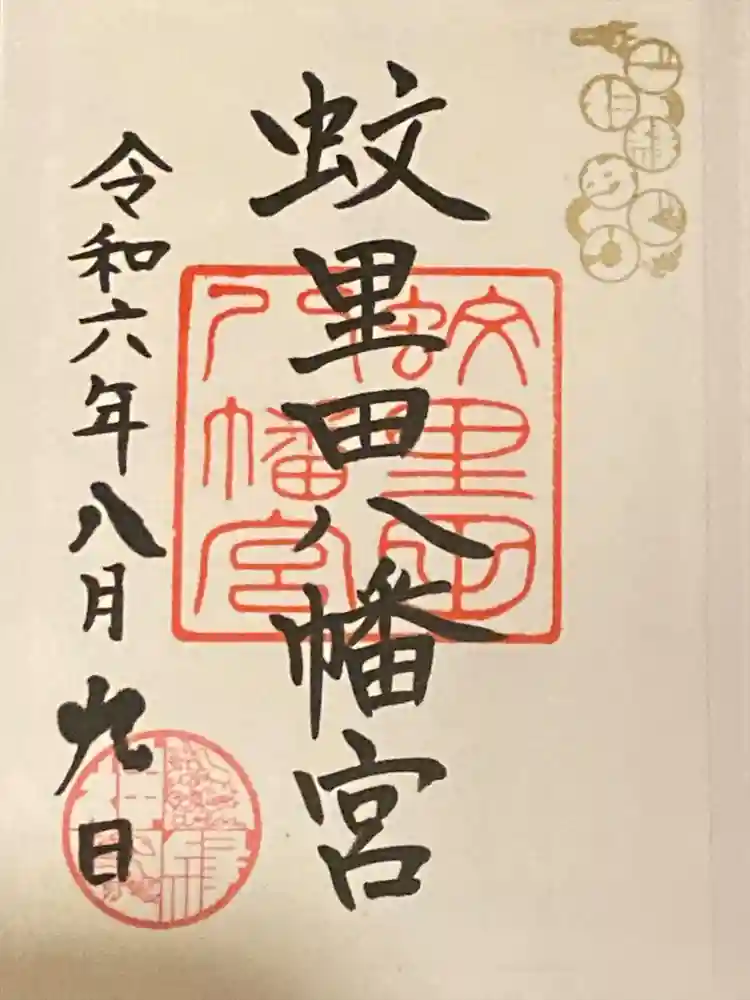 蚊里田八幡宮
蚊里田
八幡宮
令和六年八月九日